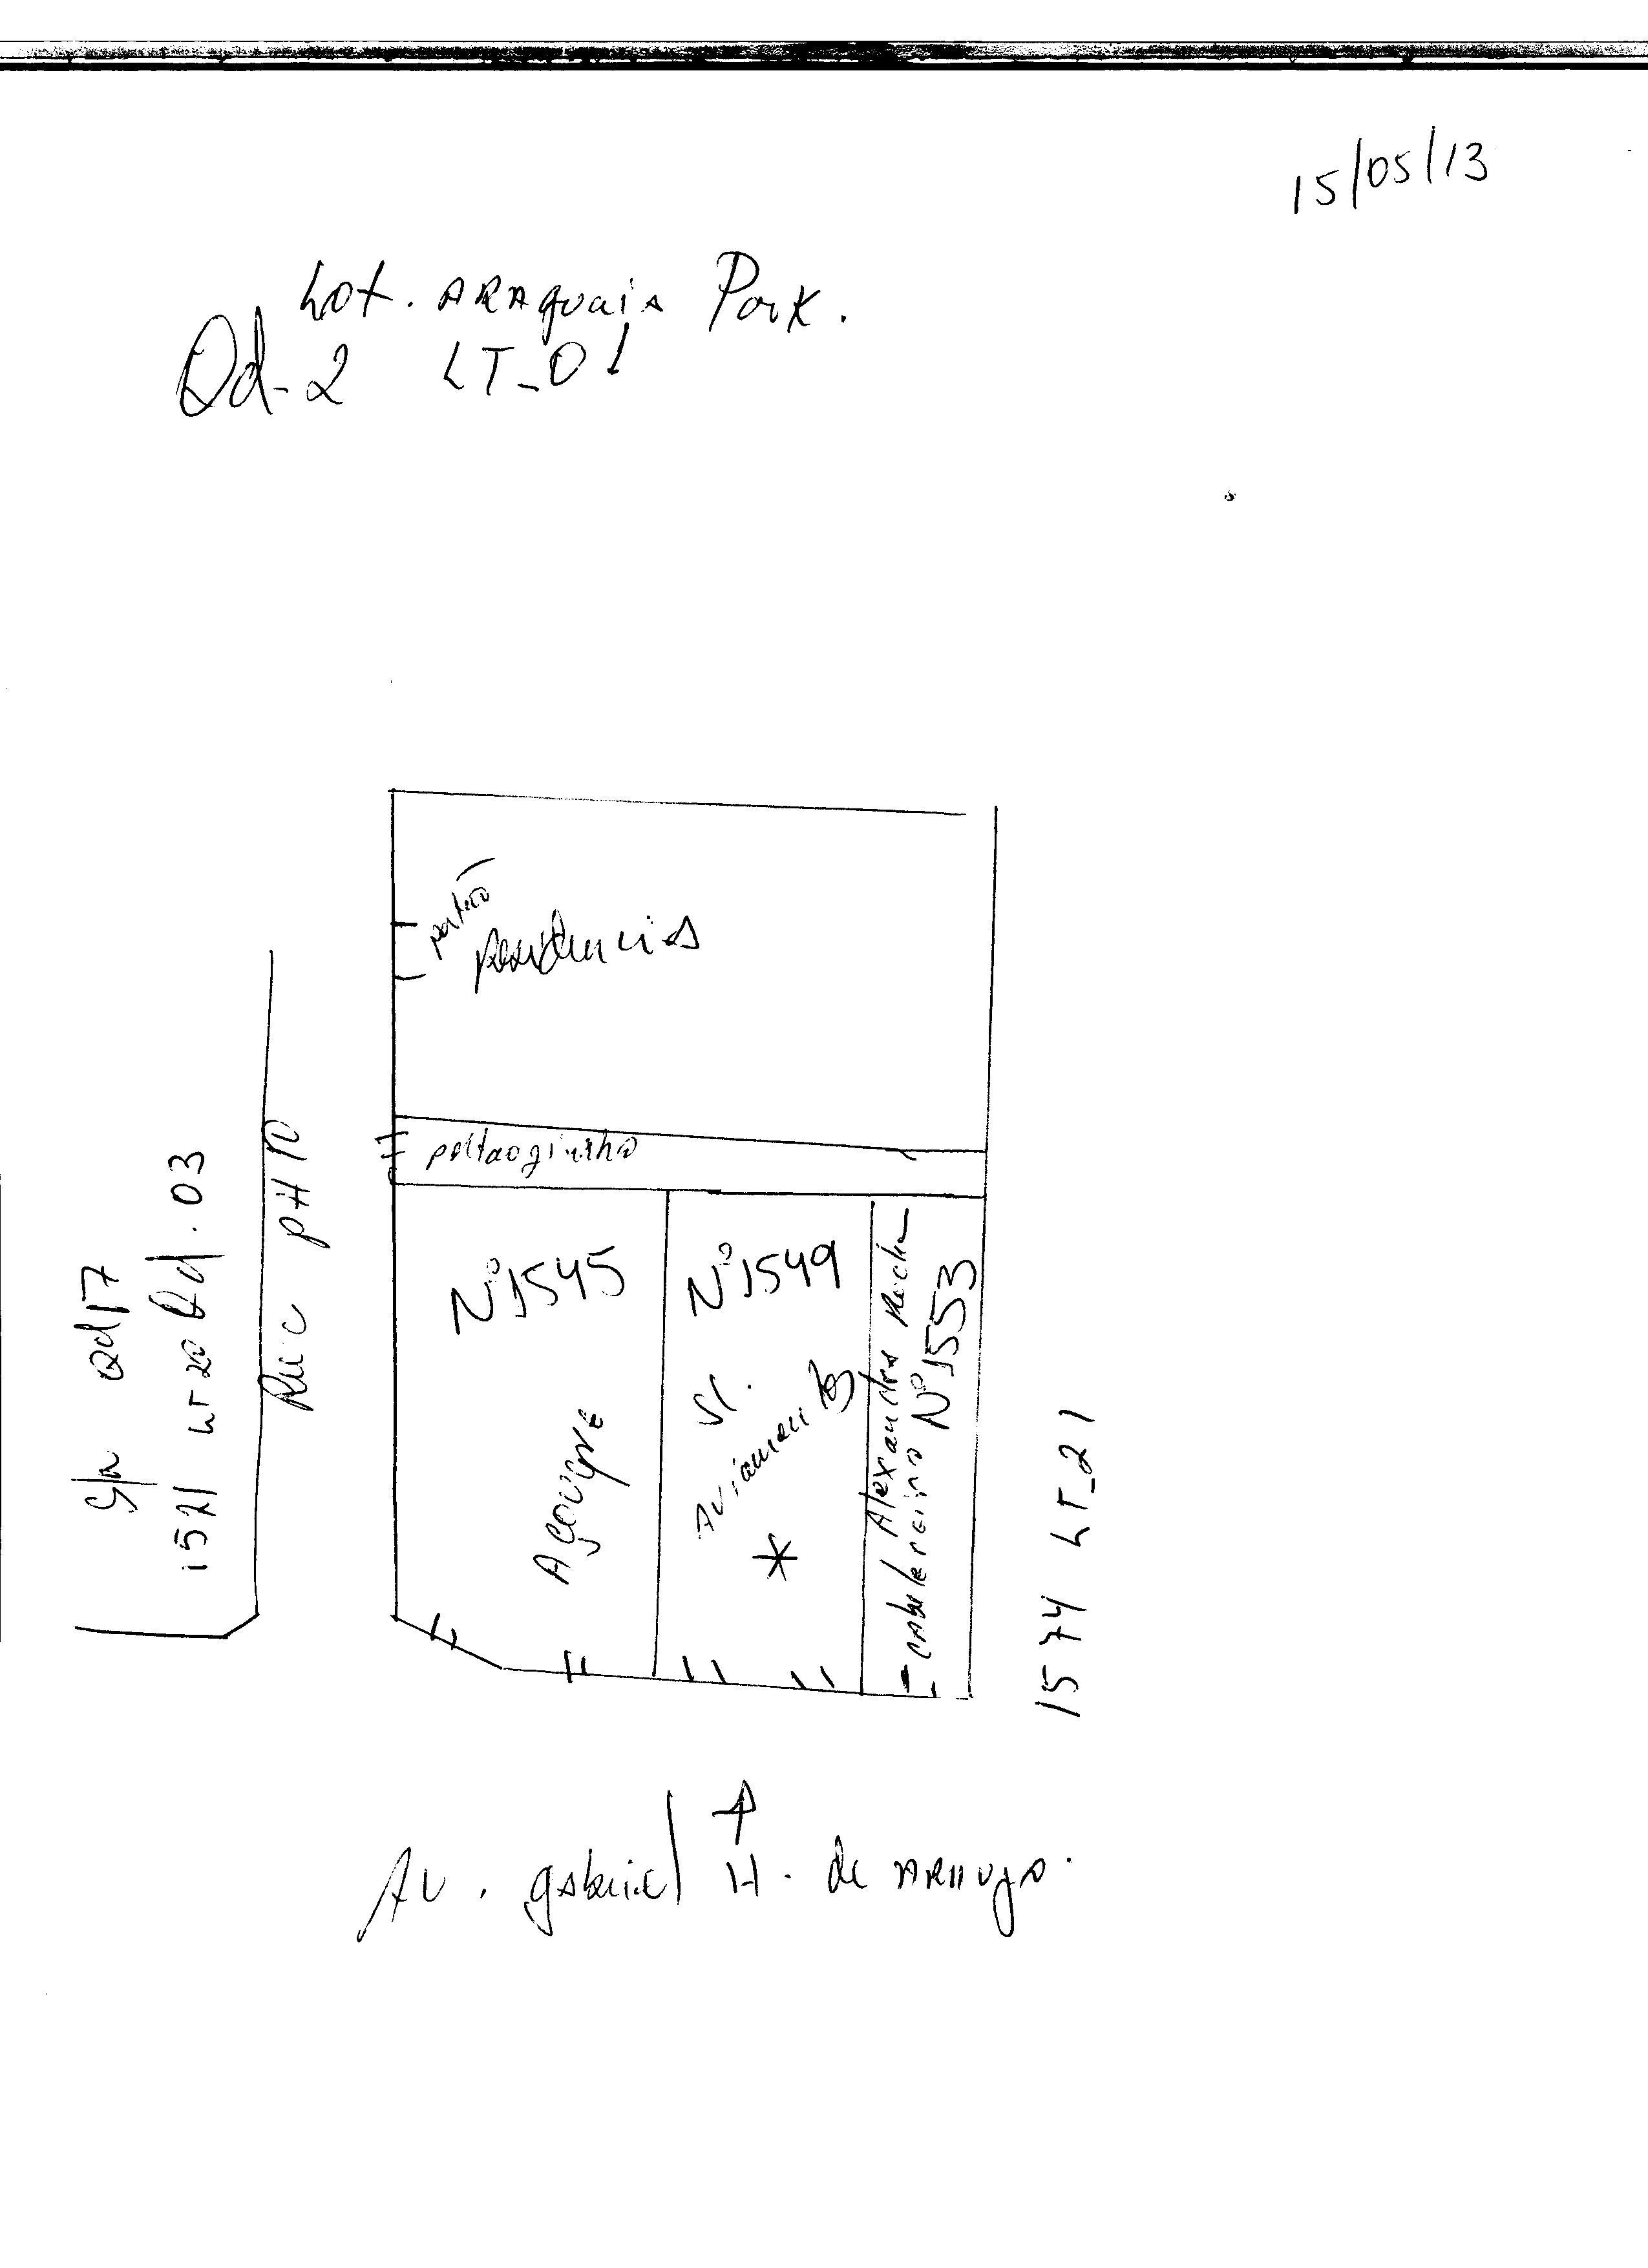 15/05/13
Lot. ARAguaia Park.
Qd-2 LT-01
portão
Residencia
poltaoginho
Nº 1545
Açougue
Nº 1549
Sr.
Aviamentos
*
Alexandre Rocha
- cabeleireiro Nº 1553
Rua pH 10
S/n Qd 17
1571 LT 20 Qd. 03
1574 LT-21
Av. gabriel H. de ARAujo.